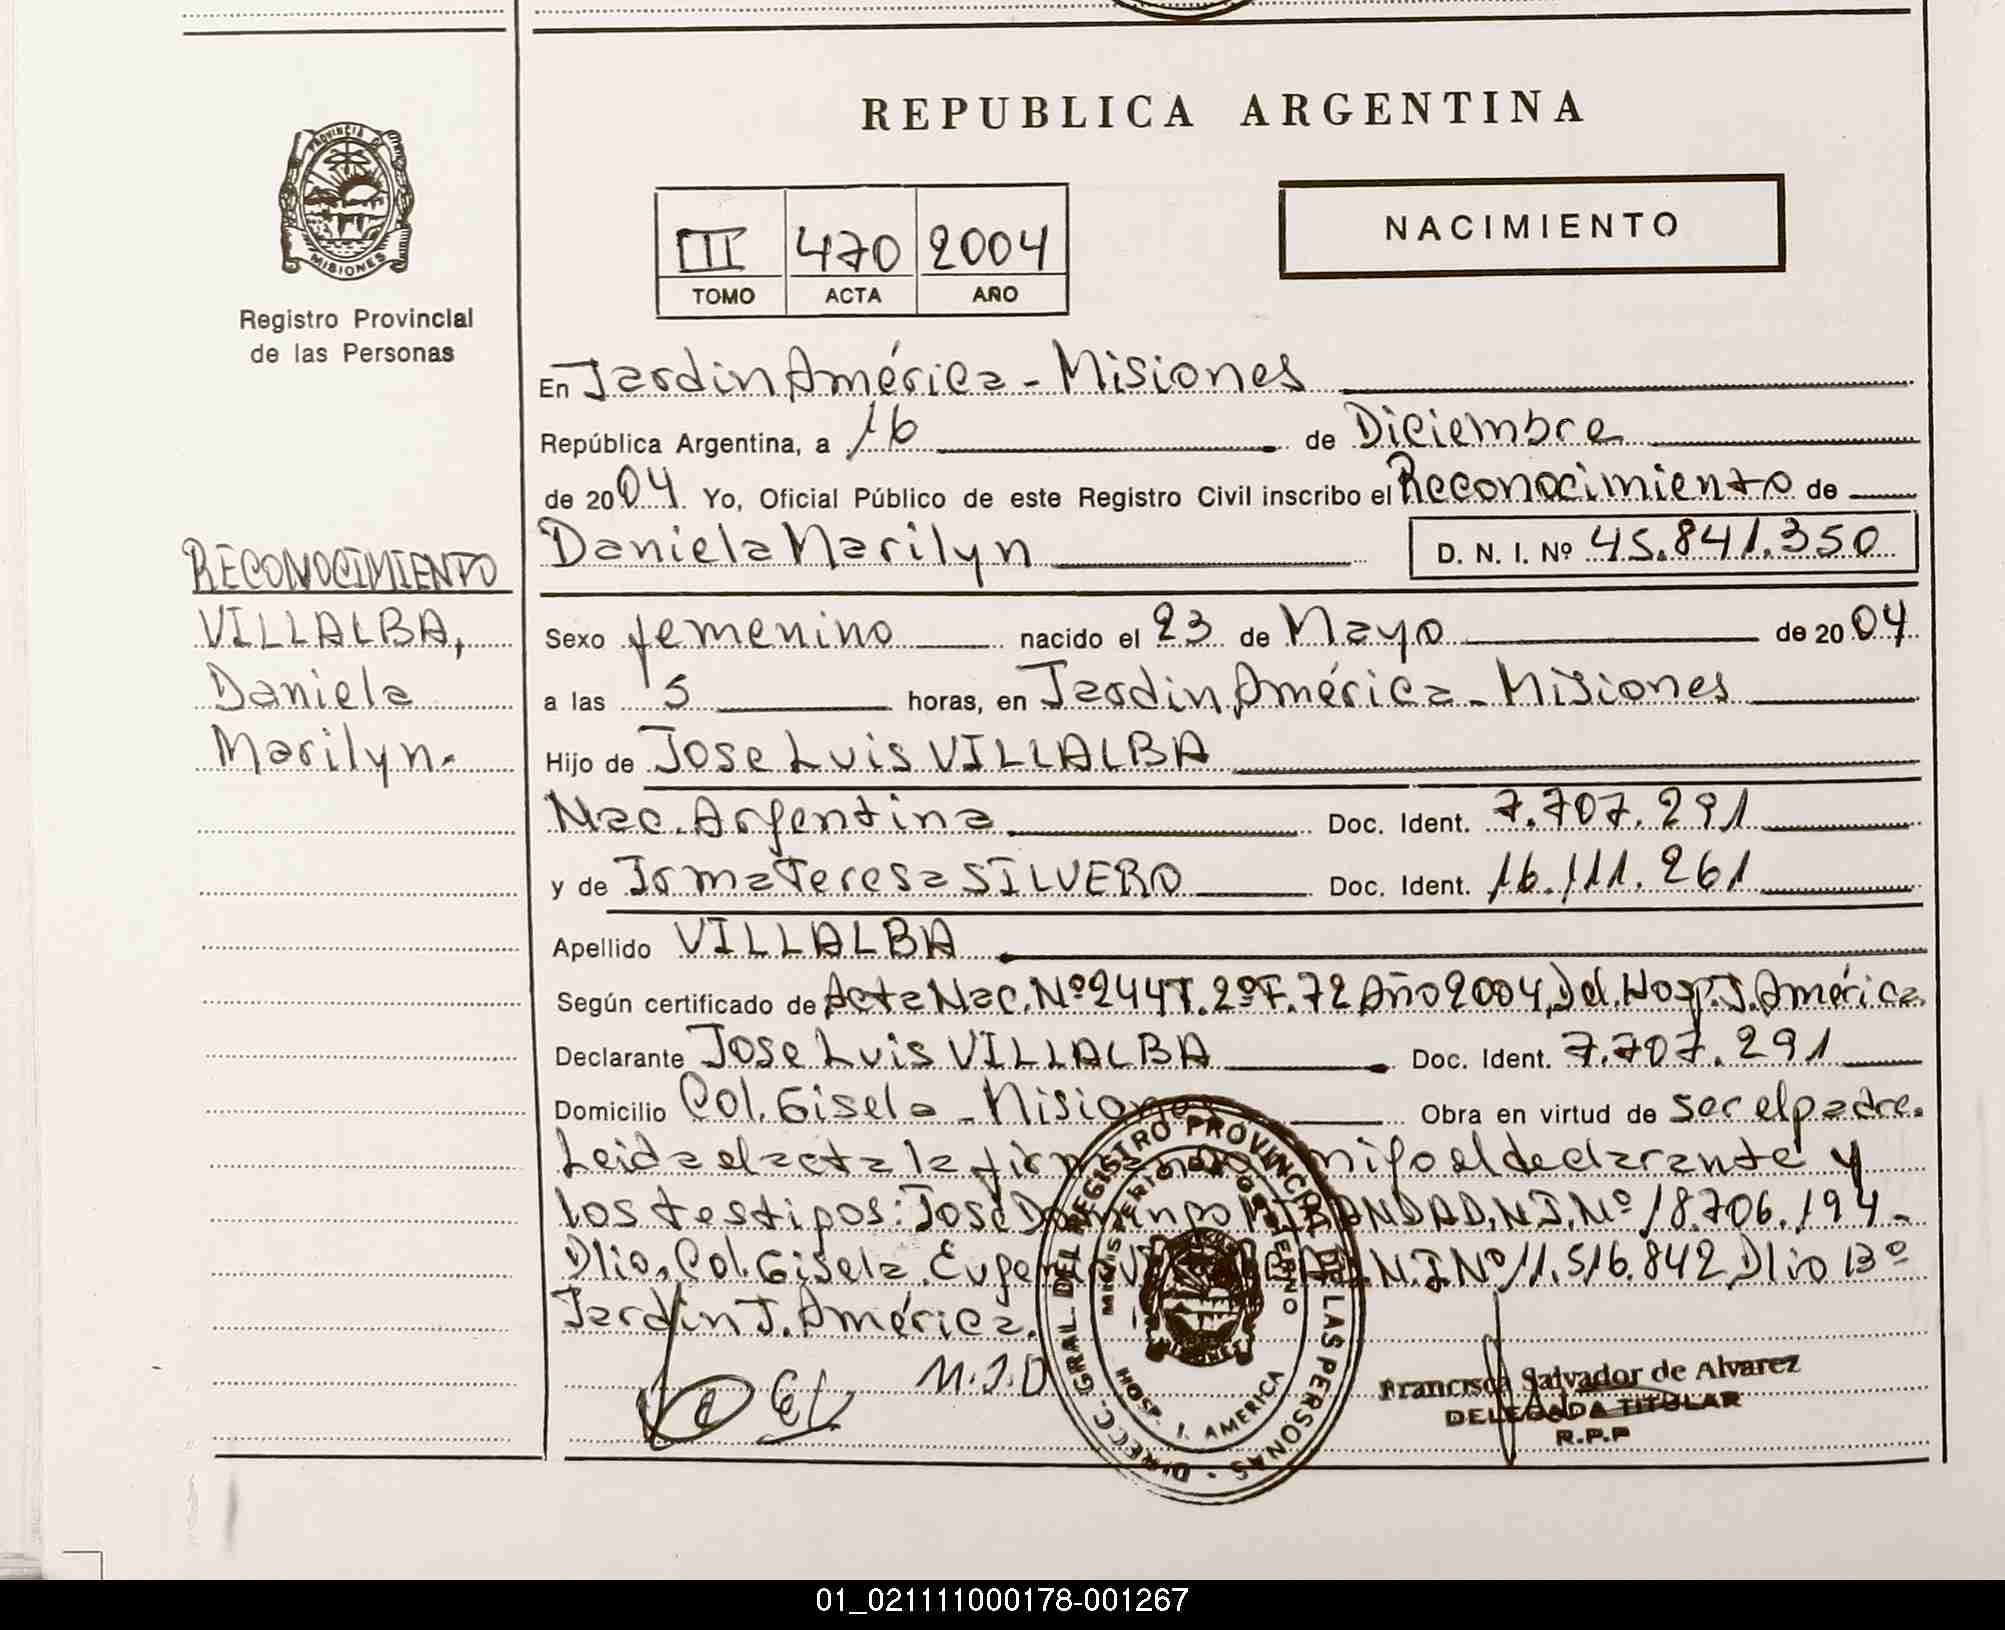 REPUBLICA ARGENTINA
PROVINCIA DE
MISIONES
Registro Provincial
de las Personas
III 470 2004
TOMO ACTA AÑO
NACIMIENTO
En Jardin América - Misiones
República Argentina, a 16 de Diciembre
de 2004 Yo, Oficial Público de este Registro Civil inscribo el Reconocimiento de
Daniela Marilyn D. N. I. Nº 45.841.350
RECONOCIMIENTO
VILLALBA,
Daniela
Marilyn.
Sexo femenino nacido el 23 de Mayo de 2004
a las 5 horas, en Jardin América - Misiones
Hijo de Jose Luis VILLALBA
Nac. Argentina Doc. Ident. 7.707.291
y de Irma Teresa SILVERO Doc. Ident. 16.111.261
Apellido VILLALBA
Según certificado de Acta Nac. Nº 244 T. 2º F. 72 Año 2004, Del. Hosp. J. América
Declarante Jose Luis VILLALBA Doc. Ident. 7.707.291
Domicilio Col. Gisela - Misiones Obra en virtud de ser el padre.
Leida el acta la firman conmigo el declarante y
los testigos: José Domingo MIRANDA D.N.I. Nº 18.706.194 -
Dlio. Col. Gisela. D.N.I Nº 11.516.842 Dlio Bº
Jardin J. América.
M.J.D
DIRECC. GRAL. DEL REGISTRO PROVINCIAL DE LAS PERSONAS
MINISTERIO DE GOBIERNO
MISIONES
HOSP. J. AMERICA
Francisca Salvador de Alvarez
DELEGADA TITULAR
R.P.P
01_021111000178-001267